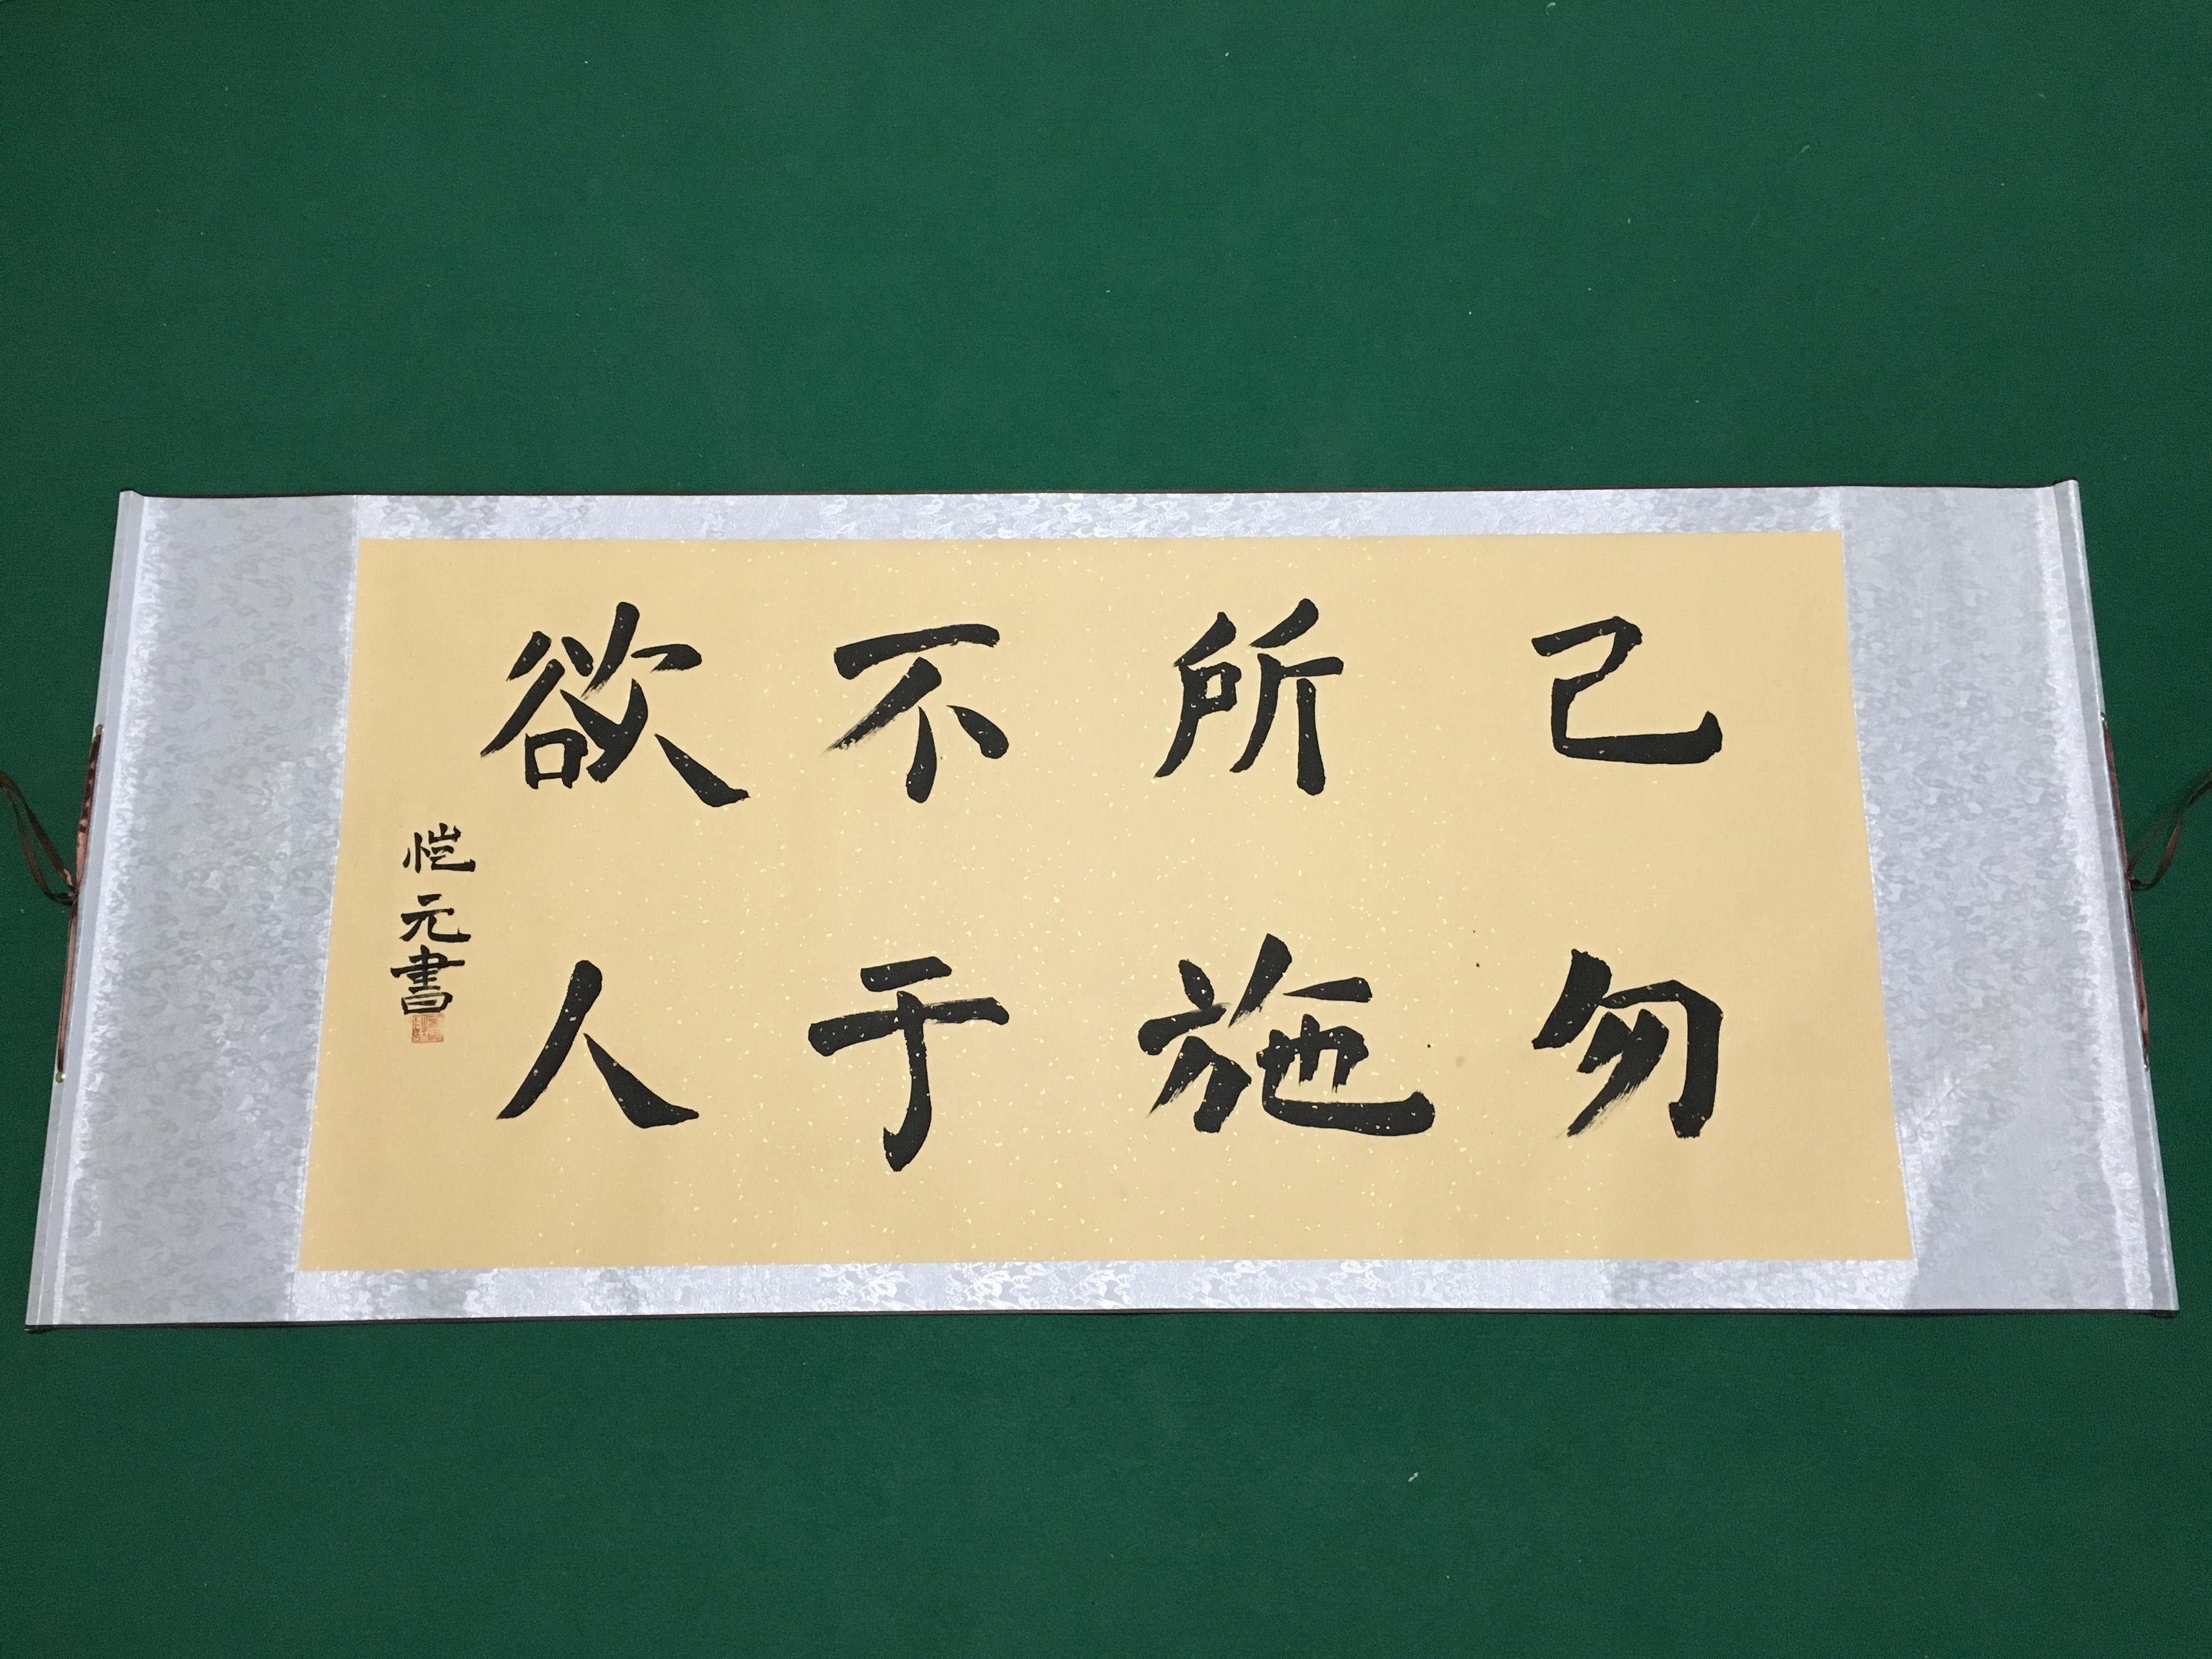 己所不欲
勿施于人
恺元書